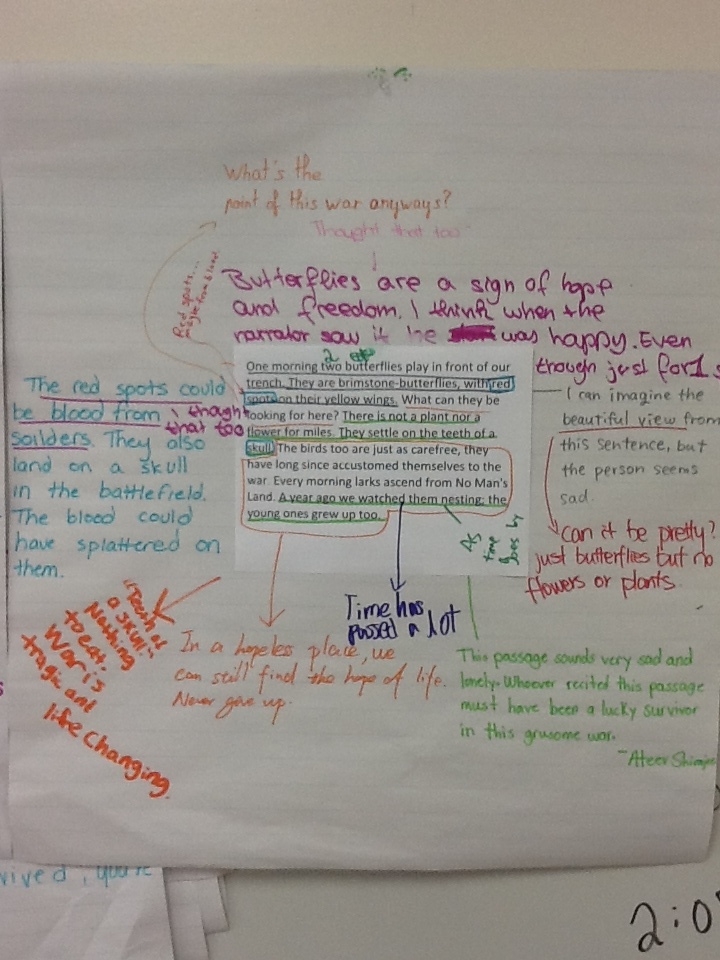 What's the
point of this war anyways?
Thought that too
Red spots...
maybe from blood
Butterflies are a sign of hope
and freedom. I think when the
narrator saw it he was happy. Even
though just for 1 s
2
One morning two butterflies play in front of our
trench. They are brimstone-butterflies, with red
spots on their yellow wings. What can they be
looking for here? There is not a plant nor a
flower for miles. They settle on the teeth of a
skull. The birds too are just as carefree, they
have long since accustomed themselves to the
war. Every morning larks ascend from No Man's
Land. A year ago we watched them nesting; the
young ones grew up too.
The red spots could
be blood from
soilders. They also
land on a skull
in the battlefield.
The blood could
have splattered on
them.
I though
that too
I can imagine the
beautiful view from
this sentence, but
the person seems
sad.
can it be pretty?
just butterflies but no
flowers or plants.
As
time
goes by
Time has
passed a lot
"Teeth of
a skull"
Nothing
to eat.
War is
tragic and
life changing.
In a hopeless place, we
can still find the hope of life.
Never give up.
This passage sounds very sad and
lonely. Whoever recited this passage
must have been a lucky survivor
in this gruesome war.
~Ateev
vived, you're
2:0